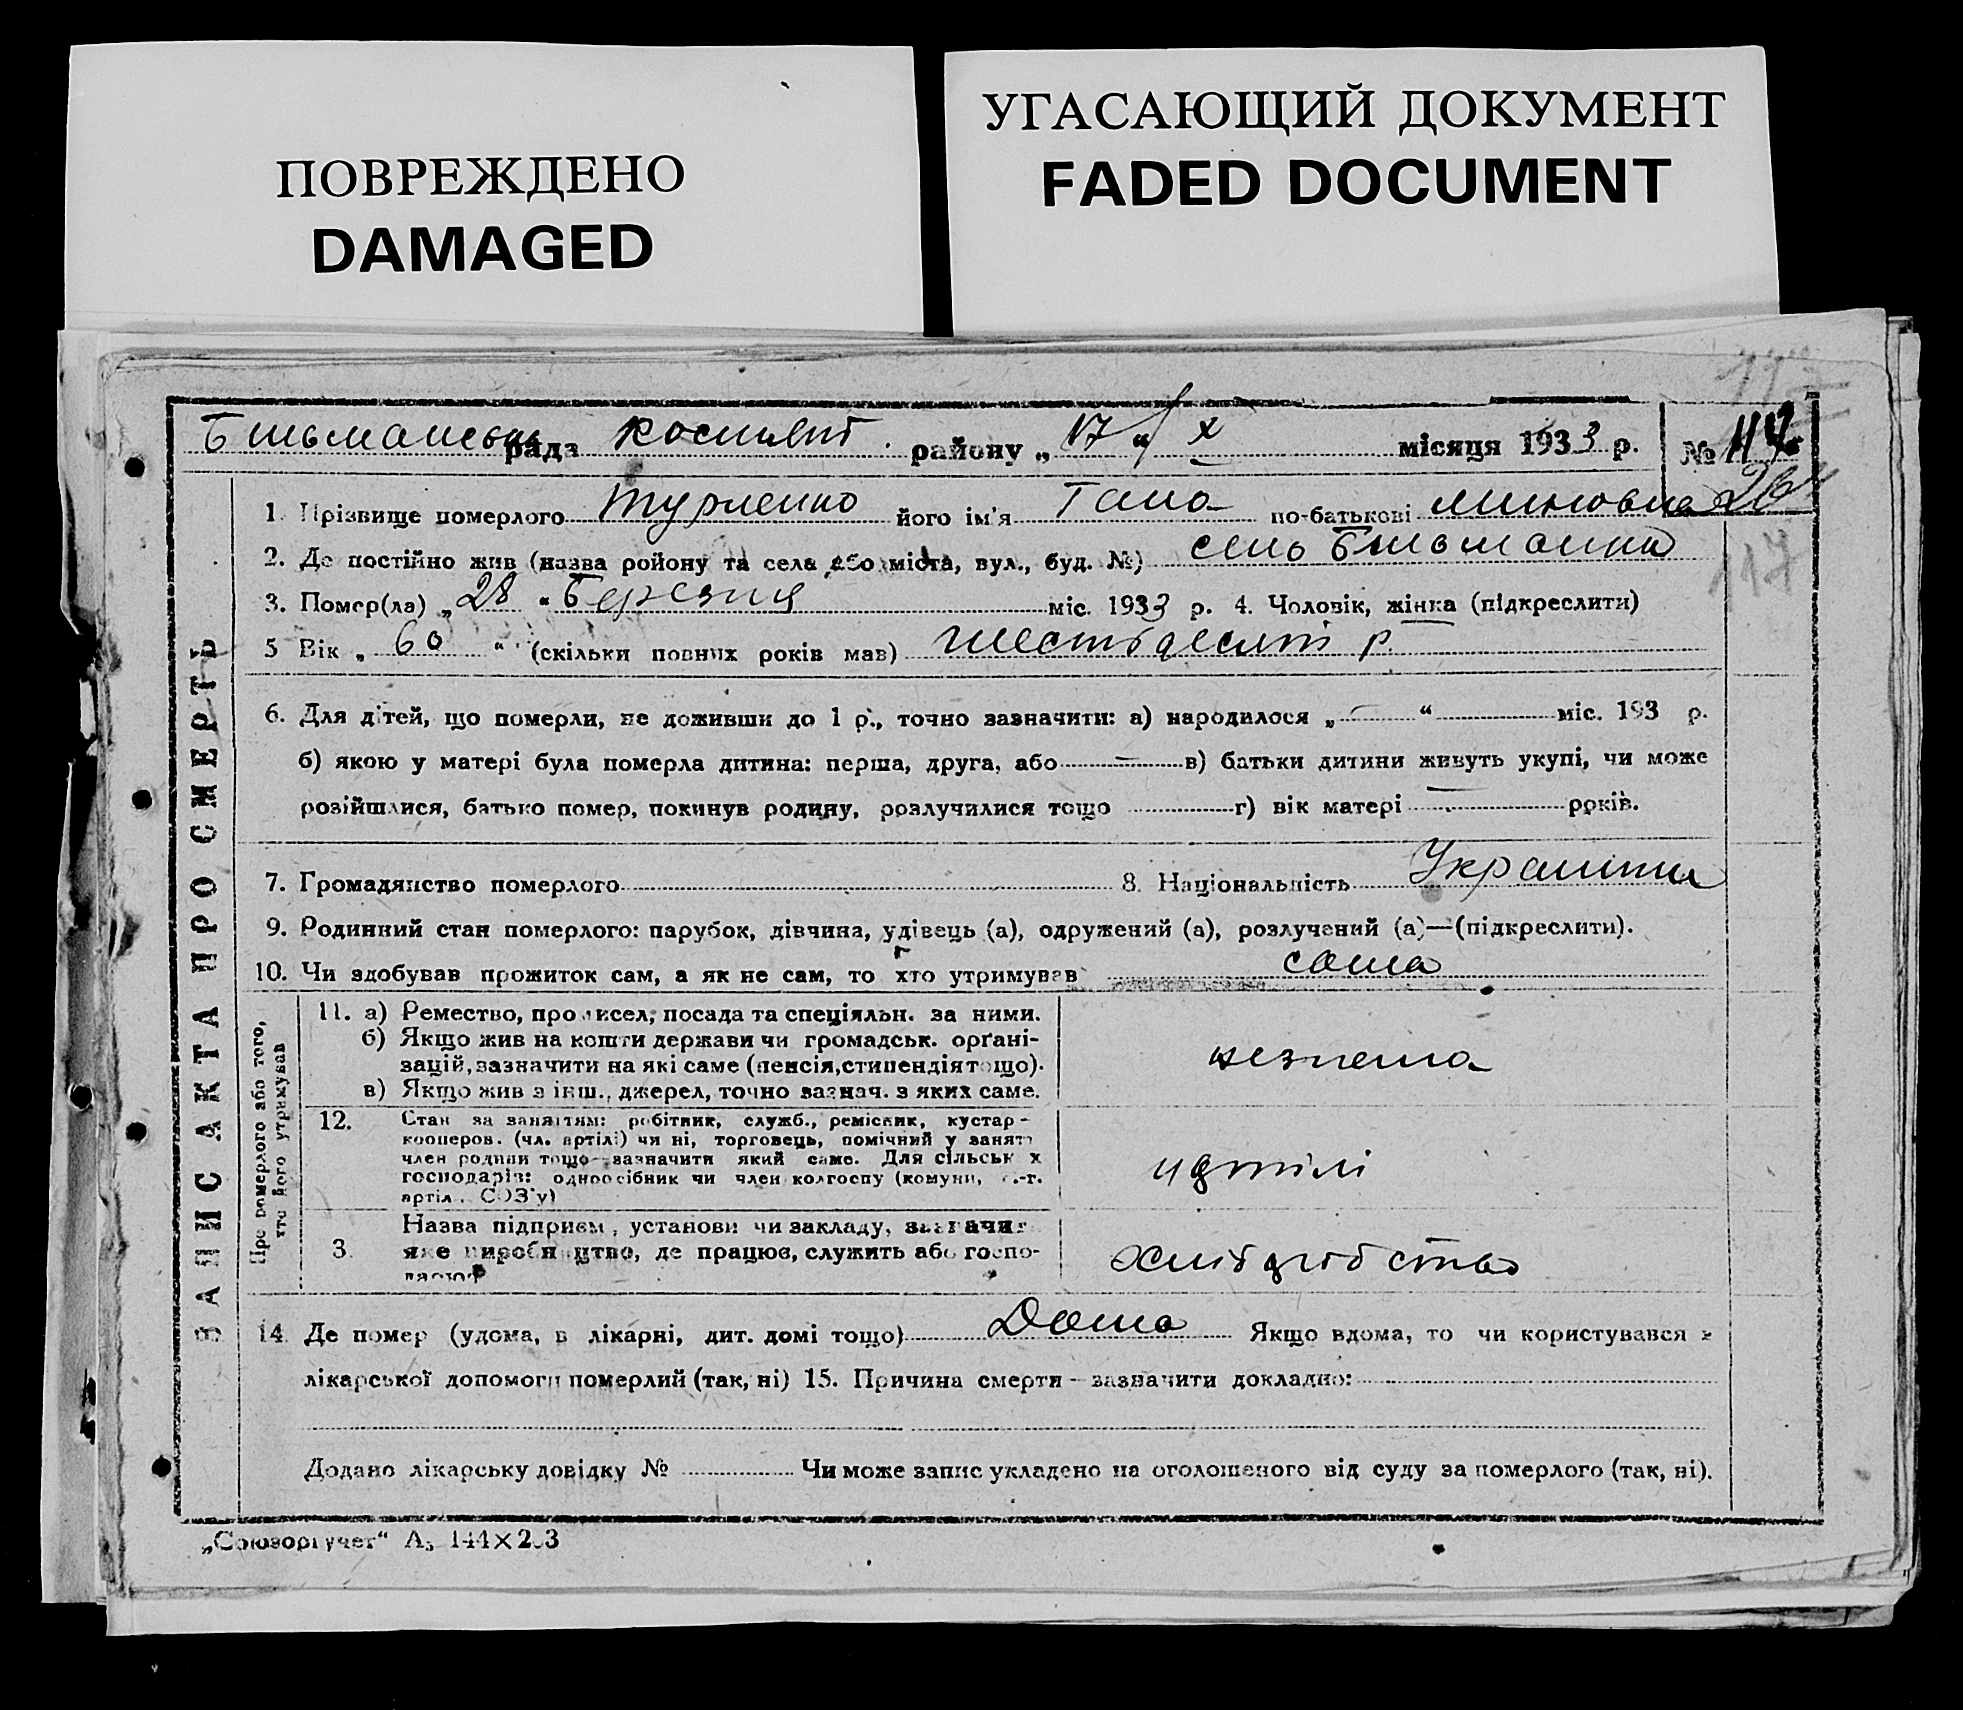 ПОВРЕЖДЕНО
DAMAGED
УГАСАЮЩИЙ ДОКУМЕНТ
FADED DOCUMENT
рада району „17“ X місяця 1933 р. № 117
1. Прізвище померлого його ім'я Гана по-батькові
2. Де постійно жив (назва ройону та села або міста, вул., буд. №) село Більманка
117
3. Помер(ла) „28“ Березня міс. 1933 р. 4. Чоловік, жінка (підкреслити)
5 Вік „60“ (скільки повних років мав) шестьдесят р.
6. Для дітей, що померли, не доживши до 1 р., точно зазначити: а) народилося „ “ міс. 193 р.
б) якою у матері була померла дитина: перша, друга, або — в) батьки дитини живуть укупі, чи може
розійшлися, батько помер, покинув родину, розлучилися тощо г) вік матері — років.
7. Громадянство померлого 8. Національність Українка
9. Родинний стан померлого: парубок, дівчина, удівець (а), одружений (а), розлучений (а)—(підкреслити).
10. Чи здобував прожиток сам, а як не сам, то хто утримував сама
ЗАПИС АКТА ПРО СМЕРТЬ
Про померлого або того, хто його утримував
11. а) Ремество, промисел, посада та спеціяльн. за ними.
б) Якщо жив на кошти держави чи громадськ. орґані-
зацій, зазначити на які саме (пенсія, стипендія тощо).
в) Якщо жив з інш., джерел, точно зазнач. з яких саме.
12. Стан за заняттям: робітник, служб., ремісник, кустар-
кооперов. (чл. артілі) чи ні, торговець, помічний у занятт
член родини тощо—зазначити який саме. Для сільськ х
господарів: одноосібник чи член колгоспу (комуни, с.-г.
артіл., СОЗ'у)
3. Назва підприєм., установи чи закладу, зазначит
яке виробництво, де працюв, служить або госпо-
дарює
хліборобство
14. Де помер (удома, в лікарні, дит. домі тощо) Дома Якщо вдома, то чи користувався з
лікарської допомоги померлий (так, ні) 15. Причина смерти – зазначити докладно:
Додано лікарську довідку № Чи може запис укладено на оголошеного від суду за померлого (так, ні).
„Союзоргучет“ А₅ 144×203